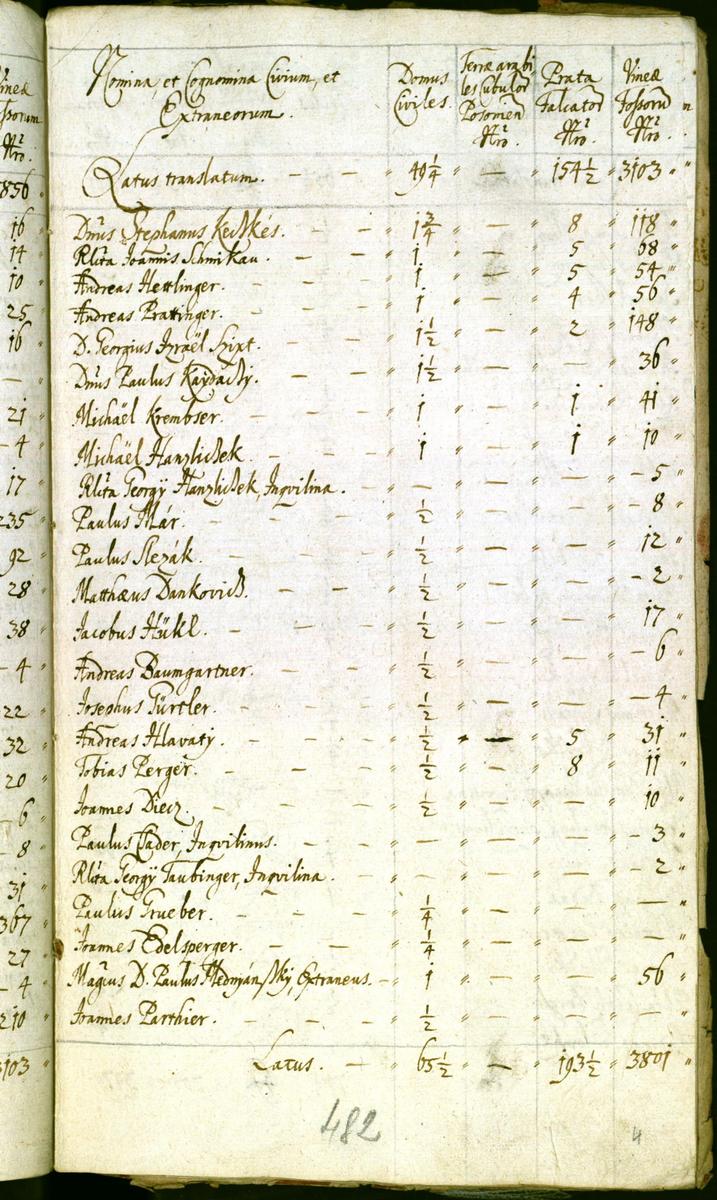 Nomina, et Cognomina Civium, et Extraneorum. Domus Civiles. Terræ arabiles Cubulorũ Posonien Nro. Prata Falcatorũ Nro. Vineæ Fossorũ Nro.
Latus translatum. — — 49 1/4 " — " 154 1/2 3103 "
Dñus Stephanus Kecskés. — — 1 3/4 " — " 8 118 "
Rlita Joannis Schmikau. — — 1 " — " 5 68 "
Andreas Hettlinger. — — 1 " — " 5 54 "
Andreas Prattinger. — — 1 " — " 4 56 "
D. Georgius Izraël Szixt. — — 1 1/2 " — " 2 148 "
Dñus Paulus — — 1 1/2 " — " — 36 "
Michaël Krembser. — — 1 " — " 1 41 "
Michaël Hanzlicsek — — 1 " — " 1 10 "
Rlita Georgÿ Hanzlicsek, Inqvilina. — — " — " — — 5 "
Paulus Már. — — 1/2 " — " — — 8 "
Paulus Slezák. — — 1/2 " — " — 12 "
Matthæus Dankovics. — — 1/2 " — " — — 2 "
Jacobus Hükl. — — 1/2 " — " — 17 "
Andreas Baumgartner. — — 1/2 " — " — — 6 "
Josephus Türtler. — — 1/2 " — " — — 4 "
Andreas Hlavatÿ. — — 1/2 " — " 5 31 "
Tobias Perger. — — 1/2 " — " 8 11 "
Joannes Diecz. — — 1/2 " — " — 10 "
Paulus Czader, Inqvilinus. — — " — " — — 3 "
Rlita Georgÿ Taubinger, Inqvilina. — — " — " — — 2 "
Paulus Grueber. — — 1/4 " — " — — "
Joannes Edelsperger. — — 1/4 " — " — — "
Magcus D. Paulus Mednyánszkÿ, Extraneus. — 1 " — " — 56 "
Joannes Parthier. — — 1/2 " — " — — "
Latus. — 65 1/2 " — " 193 1/2 3801 "
482
4